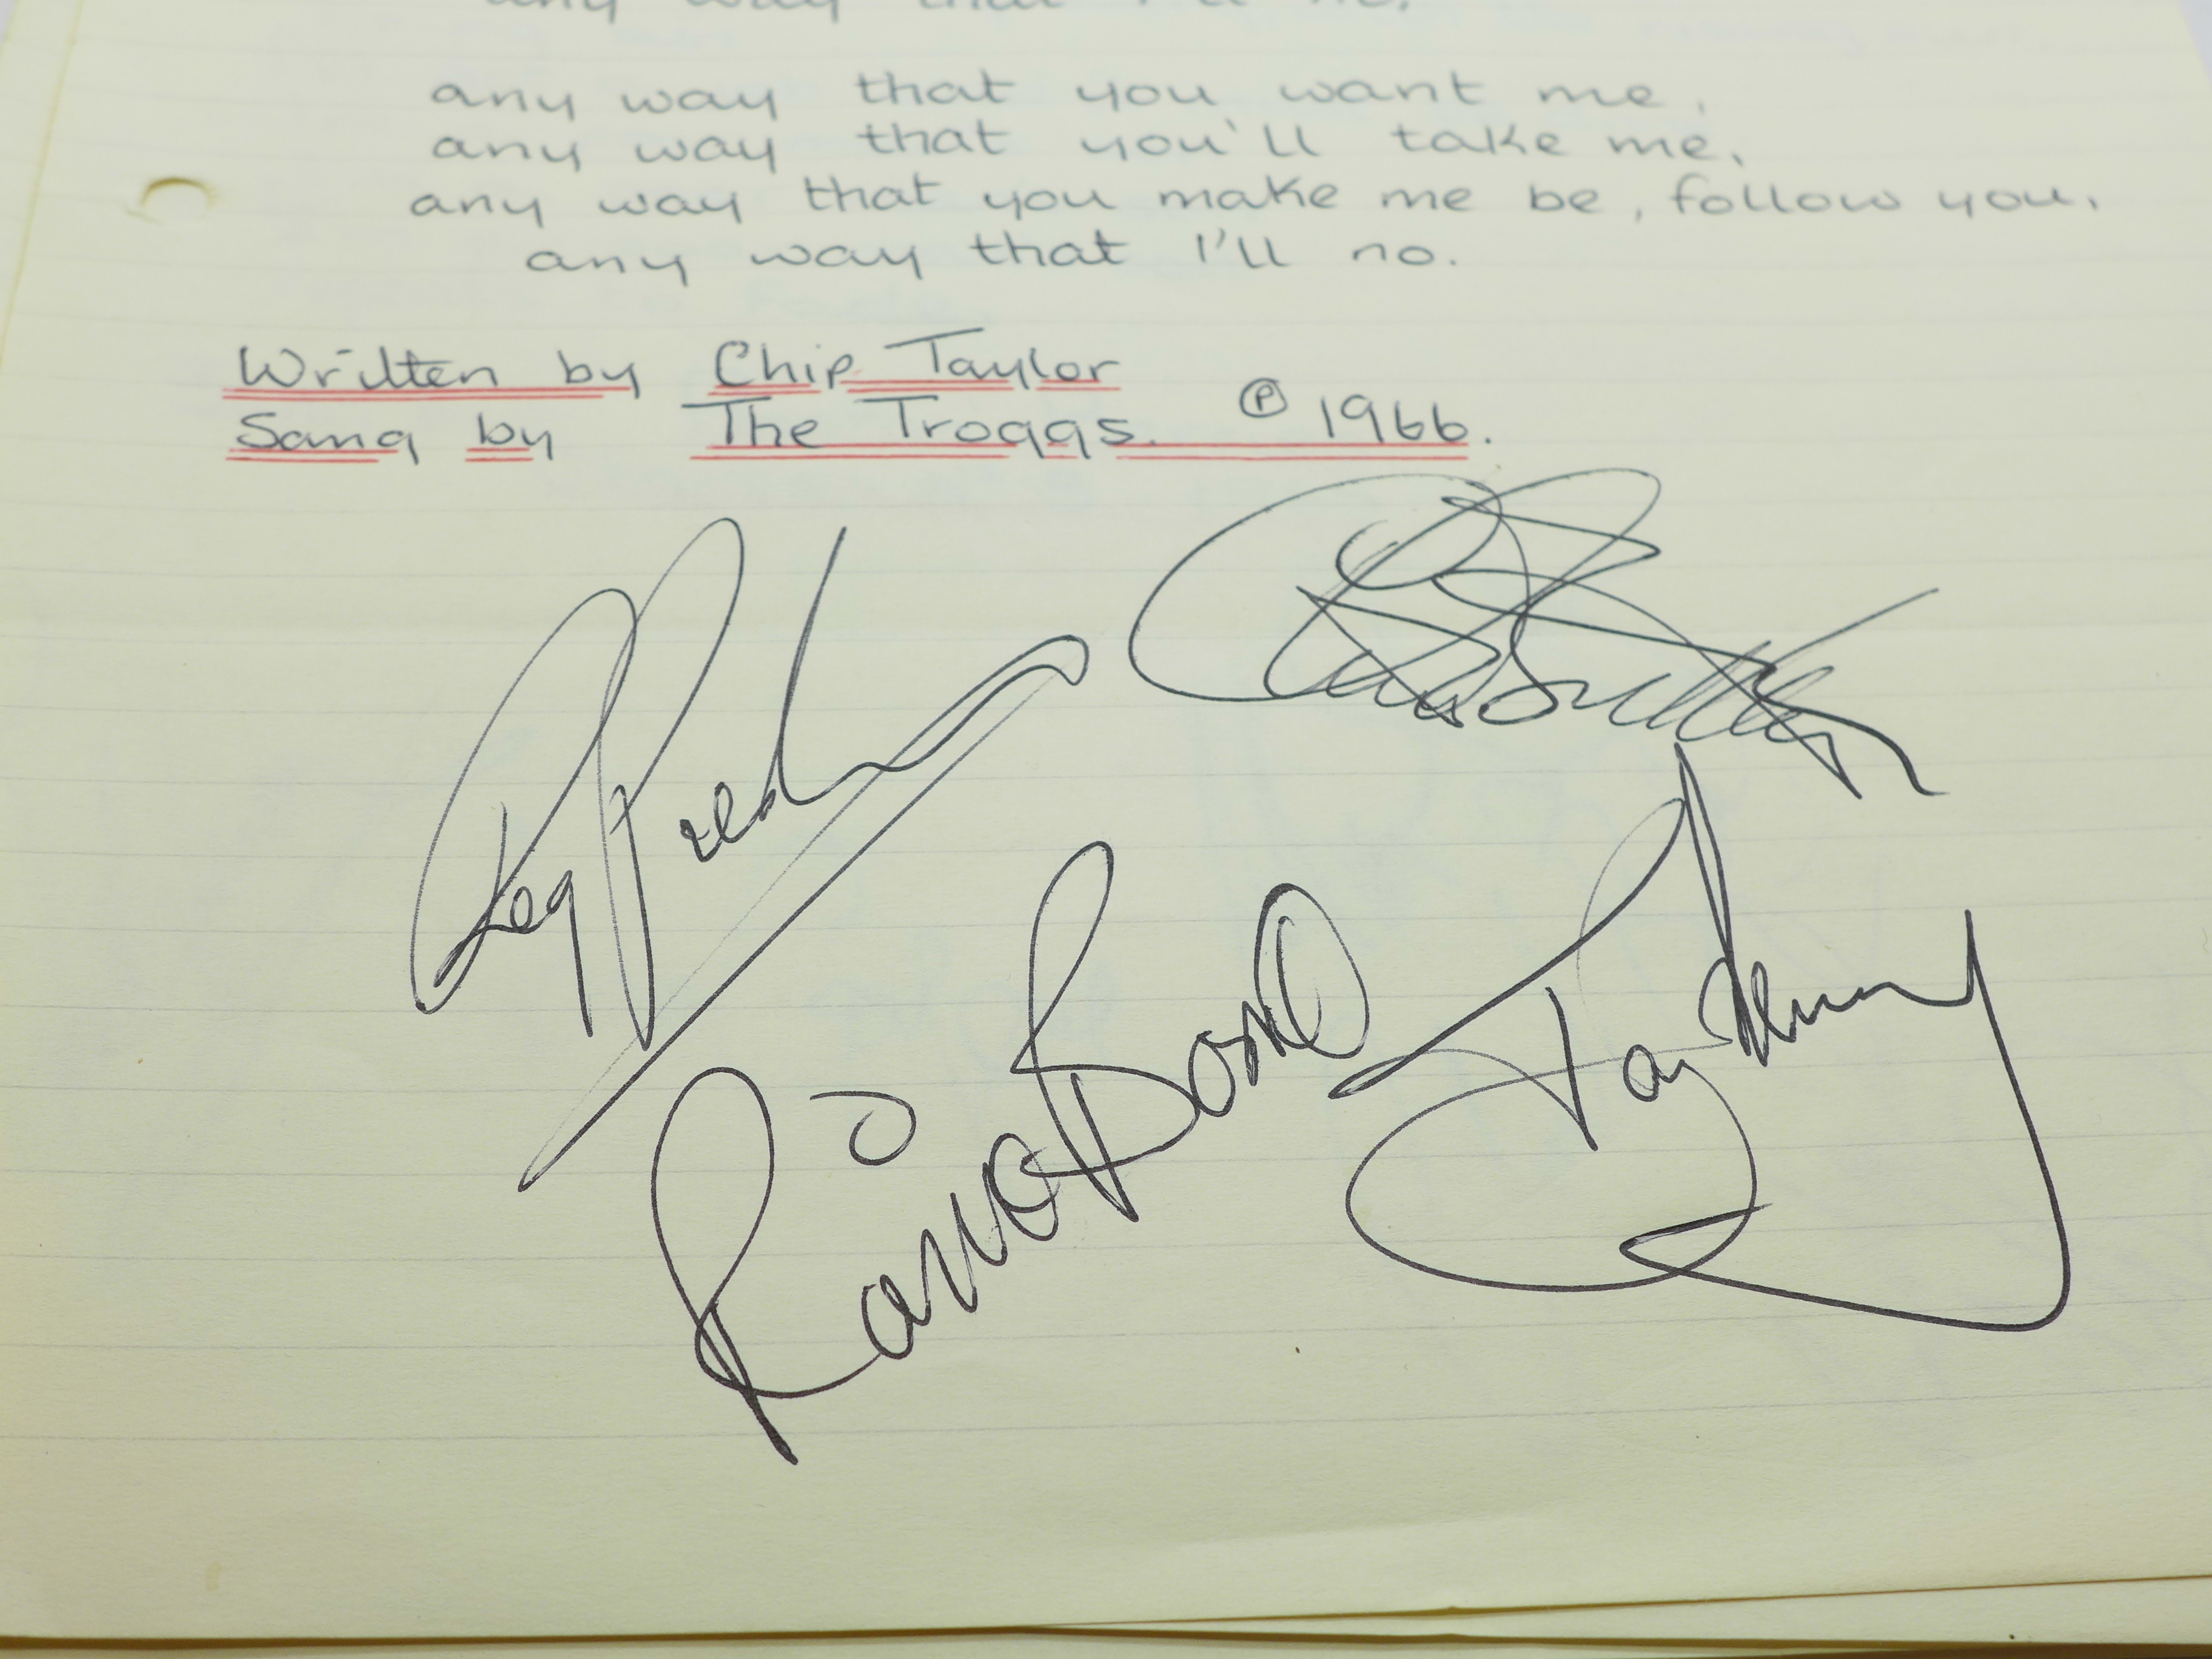 any way that I'll no.
any way that you want me,
any way that you'll take me,
any way that you make me be, follow you,
any way that I'll no.
Written by Chip Taylor
Sang by The Troggs. ℗ 1966.
Reg Presley
Ronnie Bond